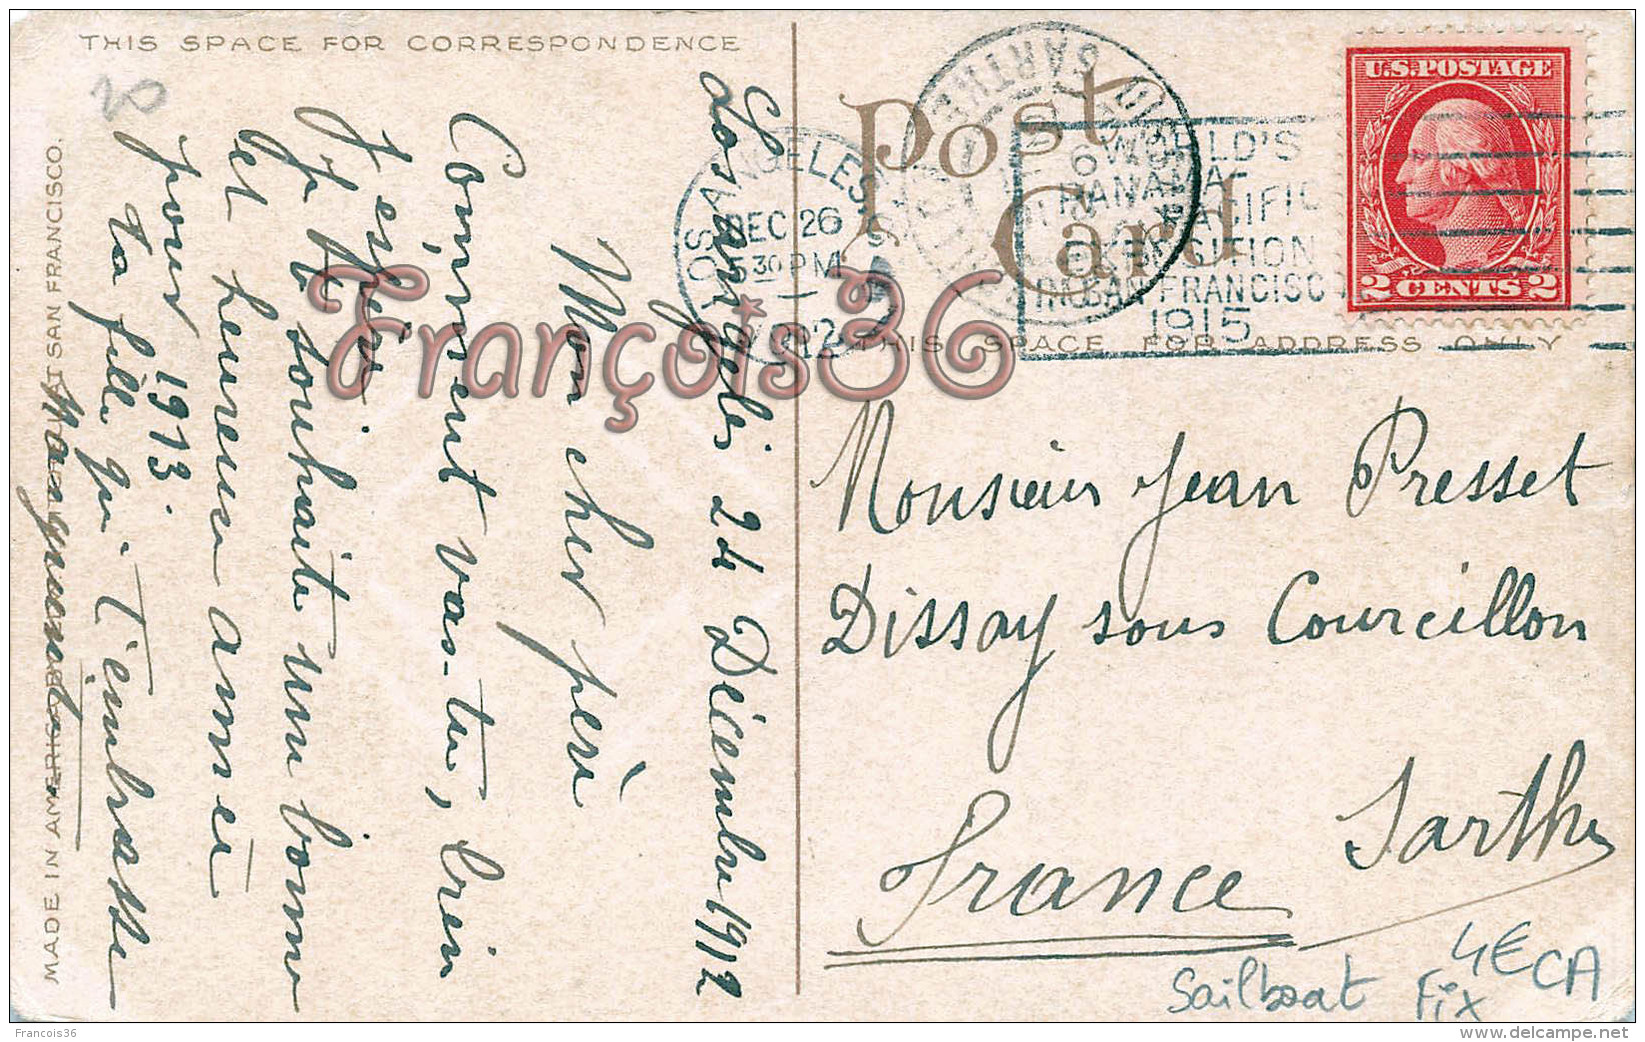 THIS SPACE FOR CORRESPONDENCE
Los Angeles 24 Décembre 1912
Mon cher père
Comment vas-tu, bien
j'espère
Je te souhaite une bonne
et heureuse année
pour 1913.
Ta fille qui t'embrasse
MADE IN AMERICA AT SAN FRANCISCO.
Post
Card
THIS SPACE FOR ADDRESS ONLY
LOS ANGELES
DEC 26
5 30 PM
1912
WORLD'S
PANAMA PACIFIC
EXPOSITION
IN SAN FRANCISCO
1915
SARTHE
U.S. POSTAGE
2 CENTS 2
Monsieur Jean Presset
Dissay sous Courcillon
Sarthe
France
Sailboat Fix 4€ CA
François36
Francois36
delcampe.net